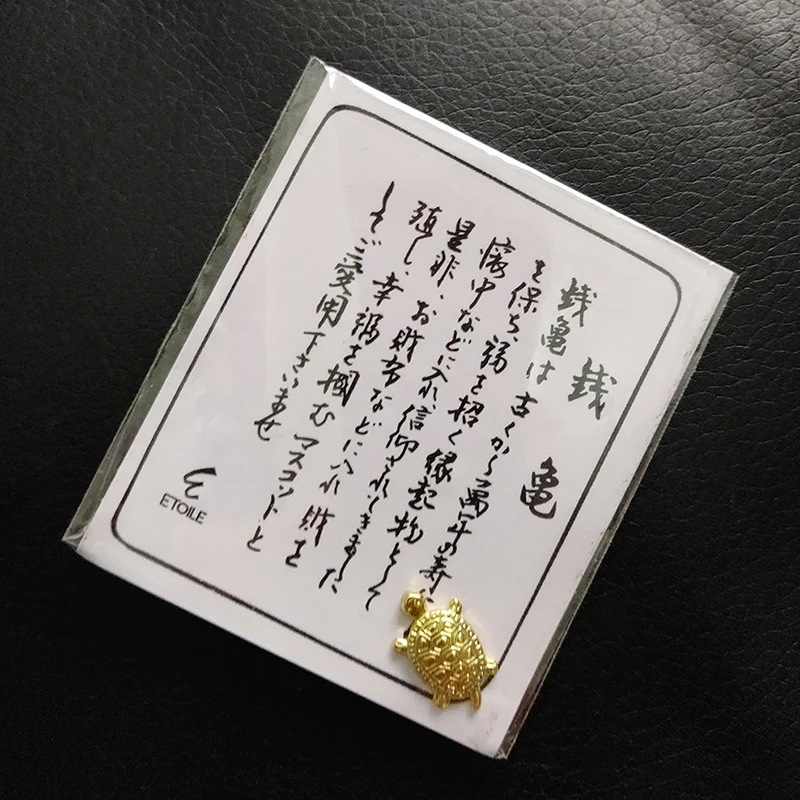 銭亀
銭亀は古くから萬年の寿
を保ち、福を招く縁起物として
懐中などに入れ、信仰されてきました
是非、お財布などに入れ財を
殖し、幸福を掴むマスコットと
してご愛用下さいませ
ETOILE